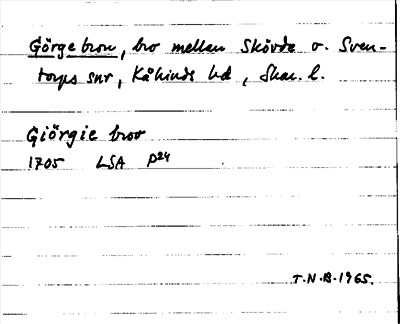 Görgebron, bro mellan Skövde o. Sven-
torps snr, Kåkinds hd, Skar. l.
Giörgie broo
1705 LSA P24
T.N.B. 1965.